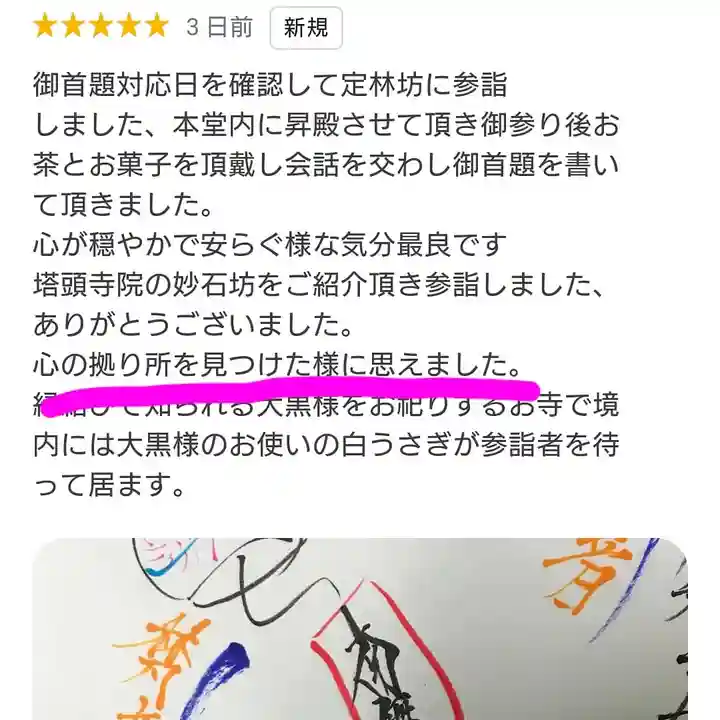 3 日前 新規
御首題対応日を確認して定林坊に参詣
しました、本堂内に昇殿させて頂き御参り後お
茶とお菓子を頂戴し会話を交わし御首題を書い
て頂きました。
心が穏やかで安らぐ様な気分最良です
塔頭寺院の妙石坊をご紹介頂き参詣しました、
ありがとうございました。
心の拠り所を見つけた様に思えました。
縁結びで知られる大黒様をお祀りするお寺で境
内には大黒様のお使いの白うさぎが参詣者を待
って居ます。